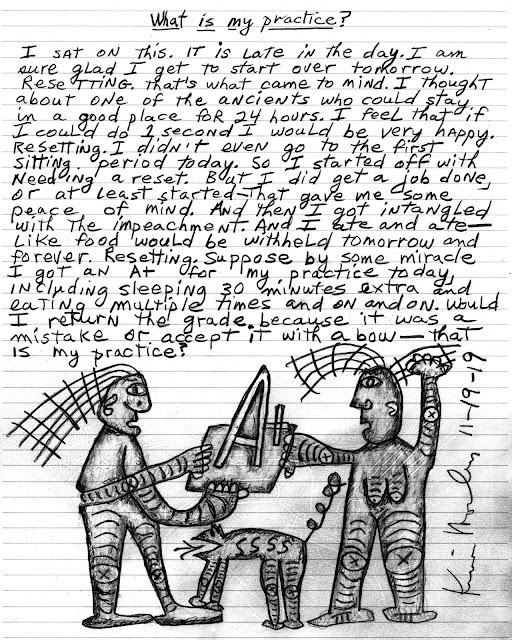 What is my practice?
I SAT ON THIS. IT is LATE in the day. I am
sure glad I get to start over tomorrow.
RESETTING. that's what came to mind. I thought
about one of the ancients who could stay
in a good place FOR 24 hours. I feel that if
I could do 1 second I would be very happy.
Resetting. I didn't even go to the first
sitting period today. So I started off with
Needing a reset. But I did get a job done,
or at least started—that gave me some
peace of mind. And then I got intangled
with the impeachment. And I ate and ate—
Like food would be withheld tomorrow and
forever. Resetting. Suppose by some miracle
I got an A+ for my practice today,
including sleeping 30 minutes extra and
eating multiple times and on and on. Would
I return the grade because it was a
mistake or accept it with a bow—that
is my practice?
A+
SSSS
11-19-19